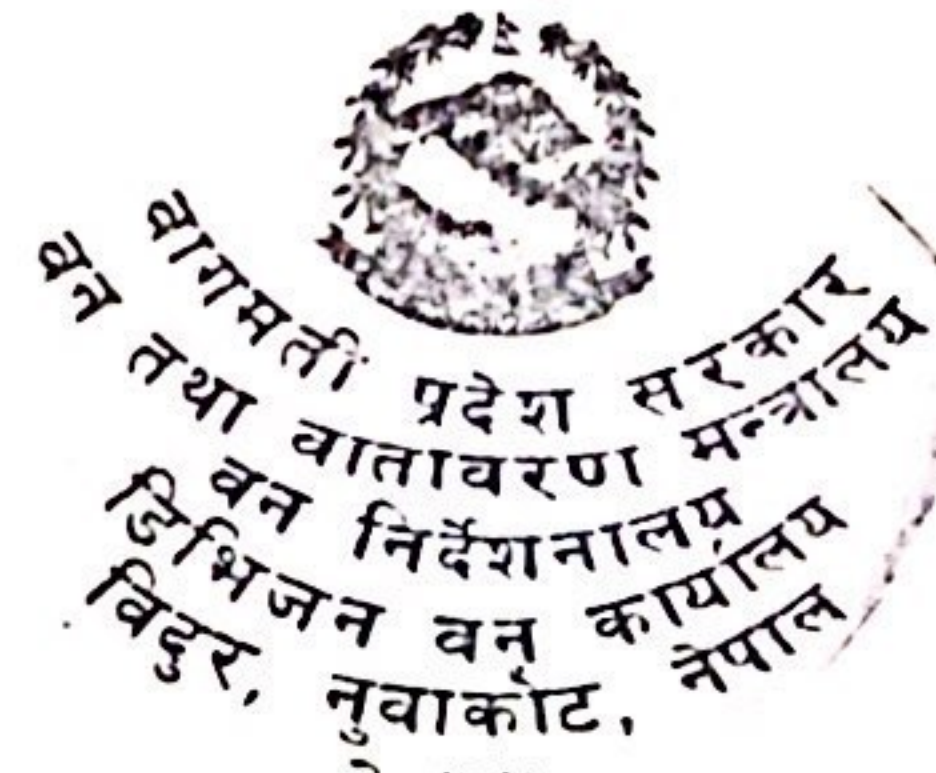 वागमती प्रदेश सरकार
वन तथा वातावरण मन्त्रालय
वन निर्देशनालय
डिभिजन वन कार्यालय
विदुर, नुवाकोट, नेपाल